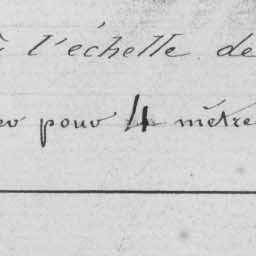 l'échelle de
pour 4 mètre